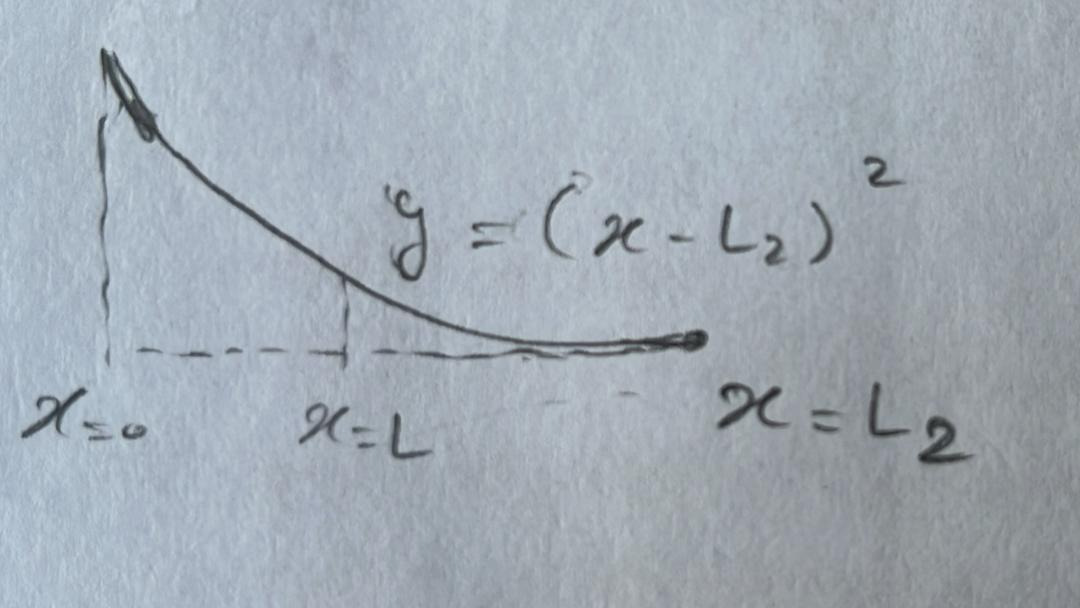 y = (x - L₂)²
x=0 x=L x = L₂